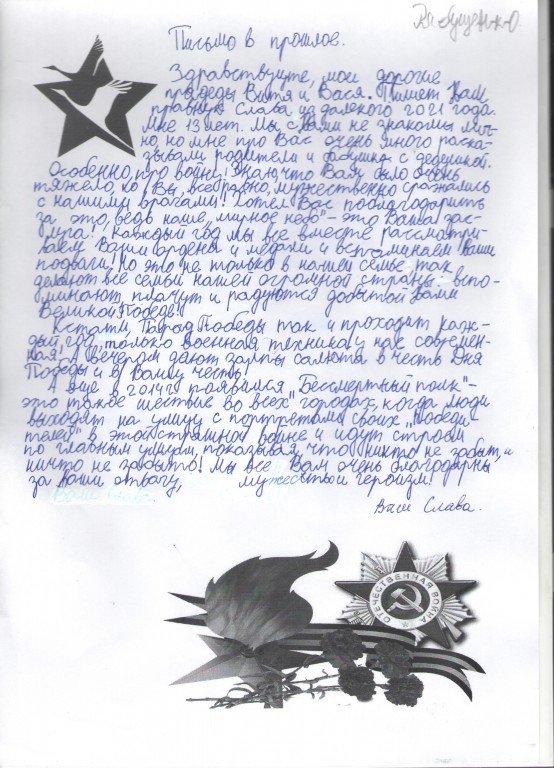 Письмо в прошлое.
Здравствуйте, мои дорогие
прадеды Витя и Вася. Пишет Вам
правнук Слава из далекого 2021 года.
Мне 13 лет. Мы с Вами не знакомы лич-
но, но мне про Вас очень много расска-
зывали родители и бабушка с дедушкой.
Особенно, про войну! Знаю, что Вам было очень
тяжело, но Вы, всё равно, мужественно сражались
с нашими врагами! Хотел Вас поблагодарить
за это, ведь наше "мирное небо" - это Ваша зас-
луга! Каждый год мы все вместе рассматри-
ваем Ваши ордена и медали и вспоминаем Ваши
подвиги. Но это не только в нашей семье, так
делают все семьи нашей огромной страны - вспо-
минают, плачут и радуются добытой Вами
Великой Победе!
Кстати, Парад Победы так и проходит каж-
дый год, только военная техника у нас современ-
ная! А вечером дают залпы салюта в честь Дня
Победы и в Вашу честь.
А еще в 2014 г. появился "Бессмертный полк" -
это такое шествие во всех городах, когда люди
выходят на улицу с портретами своих "Победи
телей" в этой страшной войне и идут строем
по главным улицам, показывая, что никто не забыт, и
ничто не забыто! Мы все Вам очень благодарны
за Ваши отвагу, мужество и героизм!
Ваш Слава.
ОТЕЧЕСТВЕННАЯ ВОЙНА